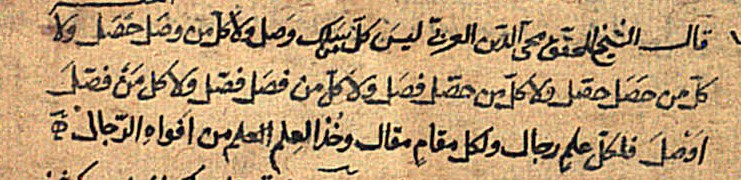 قال الشيخ المحقق محي الدين العربي ليس كل من سلك وصل ولا كل من وصل حصل ولا
كل من حصل حصّل ولا كل من حصّل فصل ولا كل من فصل فصّل ولا كل من فصّل
اوصل فلكل علم رجال ولكل مقام مقال وخذ العلم من افواه الرجال